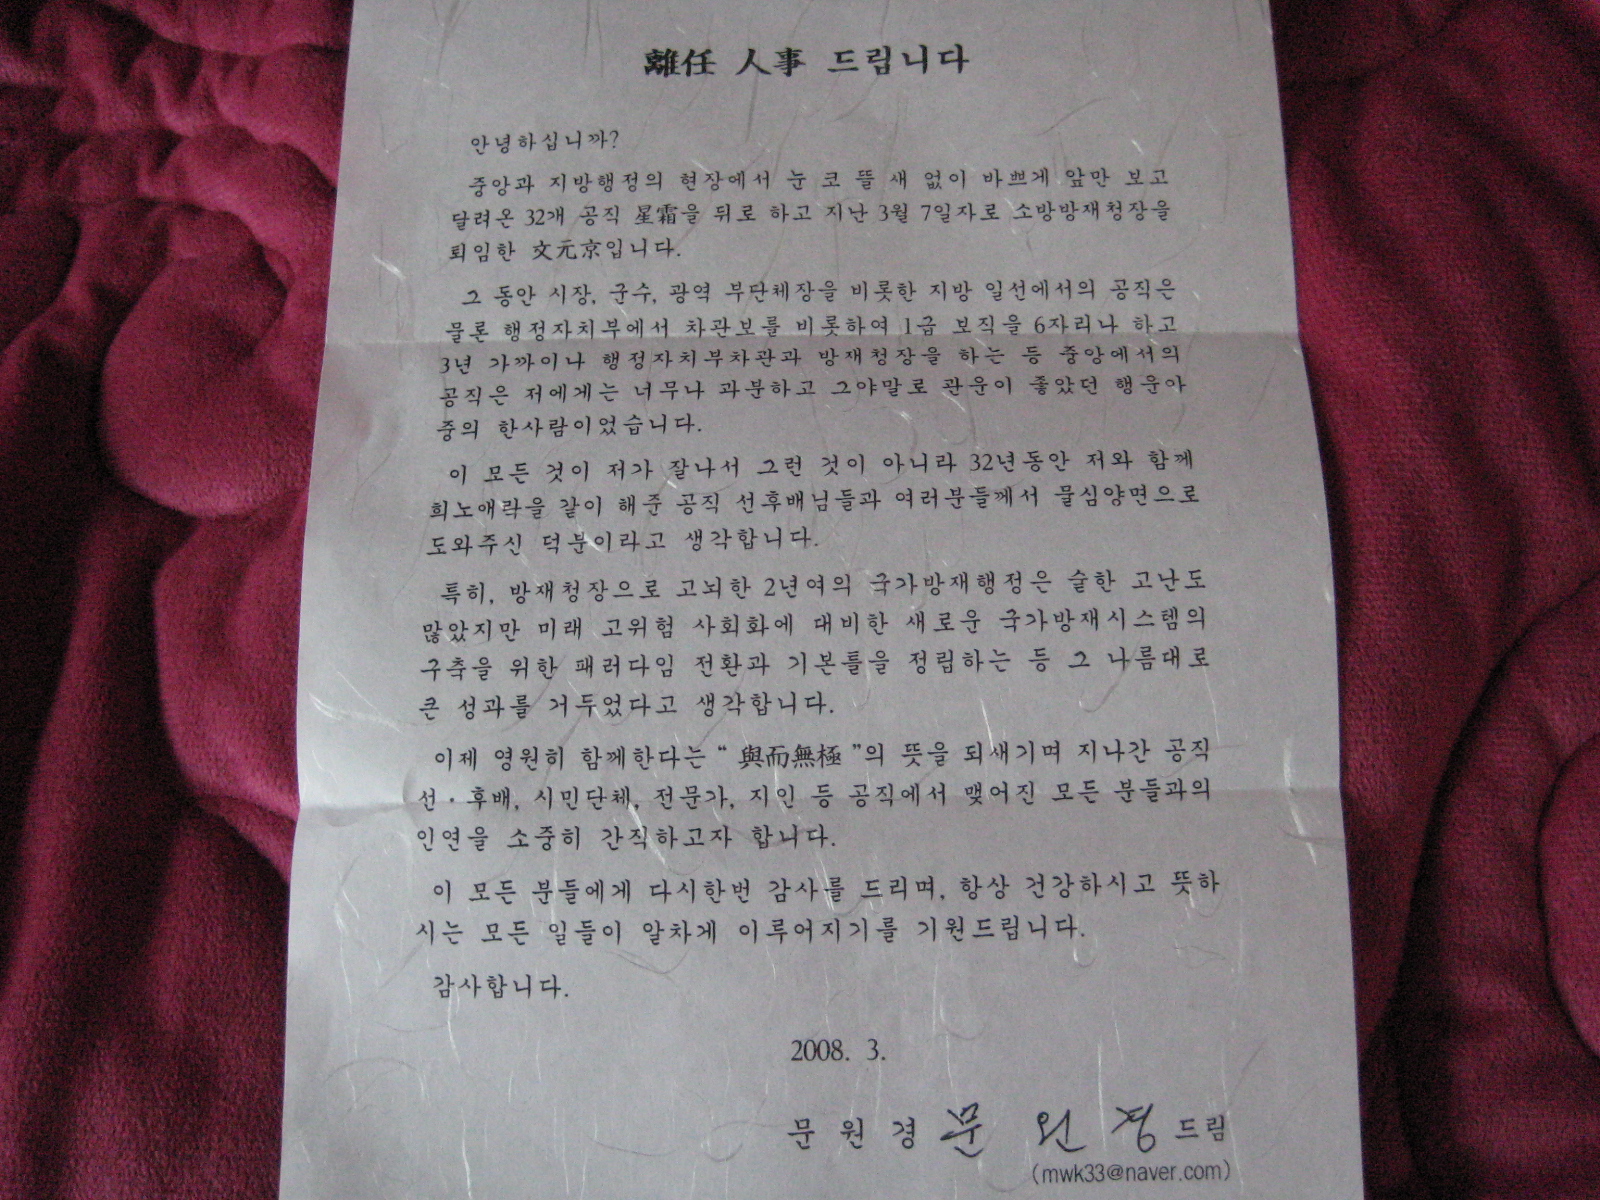 離任 人事 드립니다
안녕하십니까?
중앙과 지방행정의 현장에서 눈 코 뜰 새 없이 바쁘게 앞만 보고
달려온 32개 공직 星霜을 뒤로 하고 지난 3월 7일자로 소방방재청장을
퇴임한 文元京입니다.
그 동안 시장, 군수, 광역 부단체장을 비롯한 지방 일선에서의 공직은
물론 행정자치부에서 차관보를 비롯하여 1급 보직을 6자리나 하고
3년 가까이나 행정자치부차관과 방재청장을 하는 등 중앙에서의
공직은 저에게는 너무나 과분하고 그야말로 관운이 좋았던 행운아
중의 한사람이었습니다.
이 모든 것이 저가 잘나서 그런 것이 아니라 32년동안 저와 함께
희노애락을 같이 해준 공직 선후배님들과 여러분들께서 물심양면으로
도와주신 덕분이라고 생각합니다.
특히, 방재청장으로 고뇌한 2년여의 국가방재행정은 숱한 고난도
많았지만 미래 고위험 사회화에 대비한 새로운 국가방재시스템의
구축을 위한 패러다임 전환과 기본틀을 정립하는 등 그 나름대로
큰 성과를 거두었다고 생각합니다.
이제 영원히 함께한다는 “ 與而無極 ”의 뜻을 되새기며 지나간 공직
선·후배, 시민단체, 전문가, 지인 등 공직에서 맺어진 모든 분들과의
인연을 소중히 간직하고자 합니다.
이 모든 분들에게 다시한번 감사를 드리며, 항상 건강하시고 뜻하
시는 모든 일들이 알차게 이루어지기를 기원드립니다.
감사합니다.
2008. 3.
문 원 경 문 원 경 드림
(mwk33@naver.com)